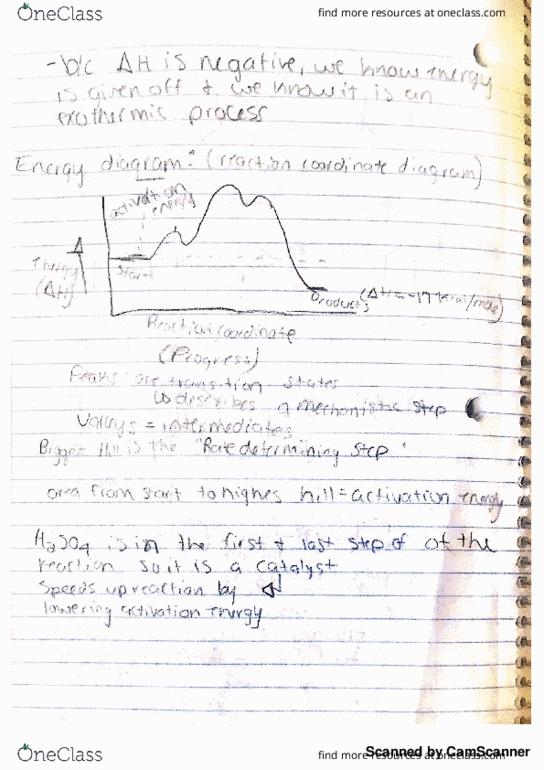 OneClass
find more resources at oneclass.com
- b/c ΔH is negative, we know energy
is given off & we know it is an
exothermic process
Energy diagram: (reaction coordinate diagram)
activation
energy
Energy
(ΔH)
Start
Products
(ΔH = -17 kcal/mole)
Reaction coordinate
(Progress)
Peaks are transition states
↳ describes a mechanistic step
Valleys = intermediates
Biggest hill is the "Rate determining step"
area from start to highes hill = activation energy
H2SO4 is in the first & last step of of the
reaction so it is a catalyst
speeds up reaction by
lowering activation energy
OneClass
find more resources at oneclass.com
Scanned by CamScanner